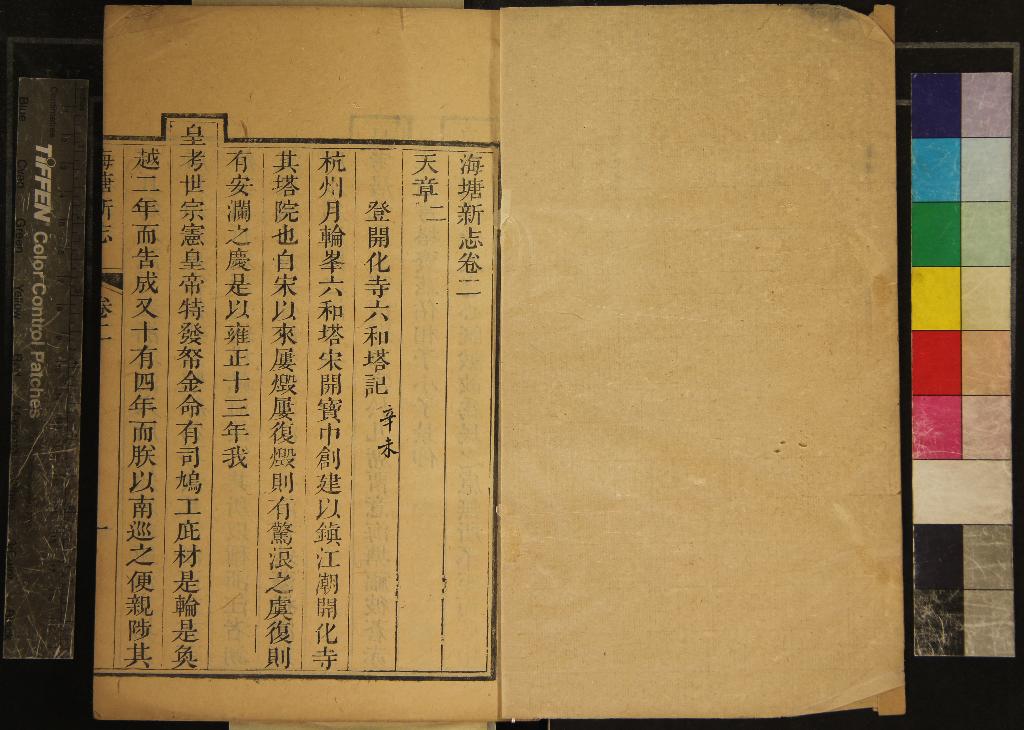 海塘新志卷二
天章二
登開化寺六和塔記 辛未
杭州月輪峯六和塔宋開寶中創建以鎮江潮開化寺
其塔院也自宋以來屢燬屢復燬則有驚浪之虞復則
有安瀾之慶是以雍正十三年我
皇考世宗憲皇帝特發帑金命有司鳩工庀材是輪是奐
越二年而告成又十有四年而朕以南巡之便親陟其
海塘新志 卷二 一
TIFFEN Color Control Patches